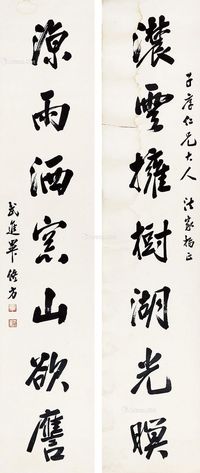 子序仁兄大人 法家指正
濃雲擁樹湖光暝
涼雨洒窓山欲譍
武進畢